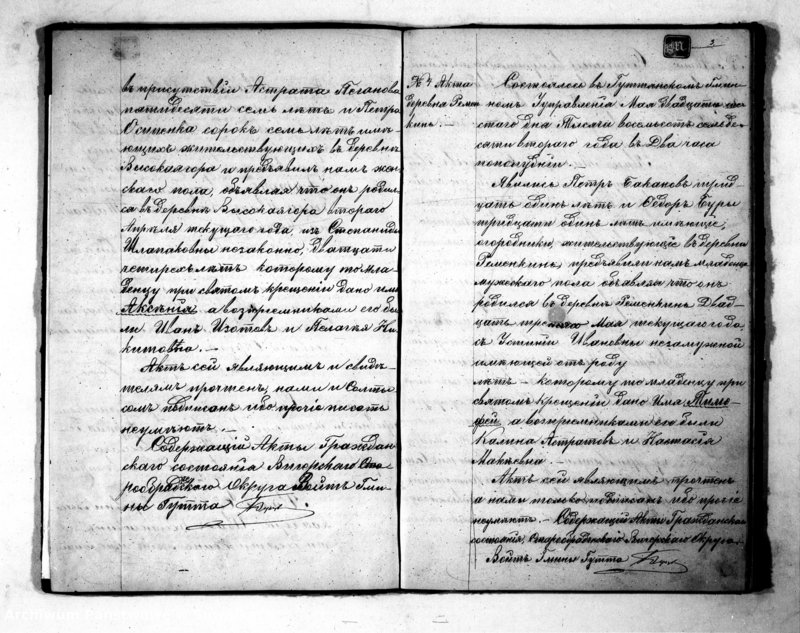 въ присутствіи Астрата Поганова
пятидесяти семь лѣтъ и Петра
Осипенка сорокъ семь лѣтъ имѣ-
ющихъ жительствующихъ въ деревнѣ
Высокаягора предъявилъ намъ жен-
скаго пола, объявляя что онъ родил-
ся въ деревнѣ Высокаягора втораго
Апрѣля текущаго года, изъ Степаниды
незаконно, двадцати
четырехъ лѣтъ которому то мла-
денцу при святомъ крещеніи дано имя
Аксенія, а воспремниками его бы-
ли Иванъ Изотовъ и Пелагея Ни-
китовна. —
Актъ сей являющимъ и свидѣ-
телямъ прочтенъ, нами и Солты-
сомъ подписанъ ибо прочіе писать
неумѣютъ. —
Содержащій Акты Граждан-
скаго состоянія Выгорскаго Ста-
рообрядскаго Округа Войтъ Гми-
ны Гутта
3
№ 4 Акта
Деревня Ремен-
кинь.
Состоялся въ Гуттянскомъ Гмин-
номъ Управленіи Мая двадцать шес-
таго дня Тысяча восемьсотъ семьде-
сятъ втораго года въ два часа
пополудни.
Явились Петръ Бакановъ трид-
цать одинъ лѣтъ и Ѳедоръ Буры
тридцати одинъ лѣтъ имѣющіе,
огородники, жительствующіе въ деревнѣ
Ременкинь, предъявили намъ младенца
мужескаго пола объявляя что онъ
родился въ деревнѣ Ременкинь Двад-
цать Мая текущаго года
съ Устиніи Ивановны незамужной
имѣющей отъ роду
лѣтъ — которому то младенцу при
святомъ крещеніи дано Имя Тимо-
фей, а воспремниками его были
Калина Астратовъ и Настасія
Макѣевна
Актъ сей являющимъ прочтенъ
а нами только подписанъ ибо прочіе
неумѣютъ. — Содержащій Акты Гражданскаго
состоянія, Старообрядскаго Выгорскаго Округа
Войтъ Гмины Гутта